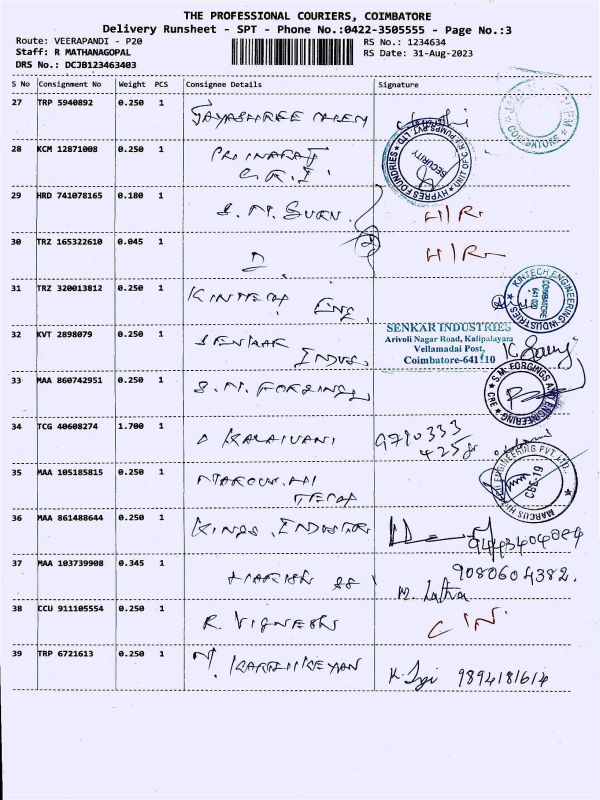 THE PROFESSIONAL COURIERS, COIMBATORE
Delivery Runsheet - SPT - Phone No.:0422-3505555 - Page No.:3
Route: VEERAPANDI - P20
Staff: R MATHANAGOPAL
DRS No.: DCJB123463403
RS No.: 1234634
RS Date: 31-Aug-2023
S No Consignment No Weight PCS Consignee Details Signature
27 TRP 5940892 0.250 1 JAYASHREE
COIMBATORE
28 KCM 12871008 0.250 1
G.R.I.
HYPRES FOUNDRIES SECURITY
29 HRD 741078165 0.180 1 S.M. GURU H/R
30 TRZ 165322610 0.045 1 H/R
31 TRZ 320013812 0.250 1 KINTECH ENG.
KINTECH ENGINEERING INDUSTRIES COIMBATORE
32 KVT 2898079 0.250 1 SENKAR
INDUS.
SENKAR INDUSTRIES
Arivoli Nagar Road, Kalipalayam
Vellamadai Post,
Coimbatore-641110
33 MAA 860742951 0.250 1 S.M. FORGINGS
S.M. FORGINGS AND ENGINEERING CBE
34 TCG 40608274 1.700 1 KALAIVANI 9790333
425
35 MAA 105185815 0.250 1
TECH
MARCUS HITECH ENGINEERING PVT. LTD. CBE-19
36 MAA 861488644 0.250 1 KINGS INDUSTR
37 MAA 103739908 0.345 1 HARISH 9080604382.
M. Latha
38 CCU 911105554 0.250 1 R. VIGNESH
39 TRP 6721613 0.250 1 N. KARTHIKEYAN 9894181614